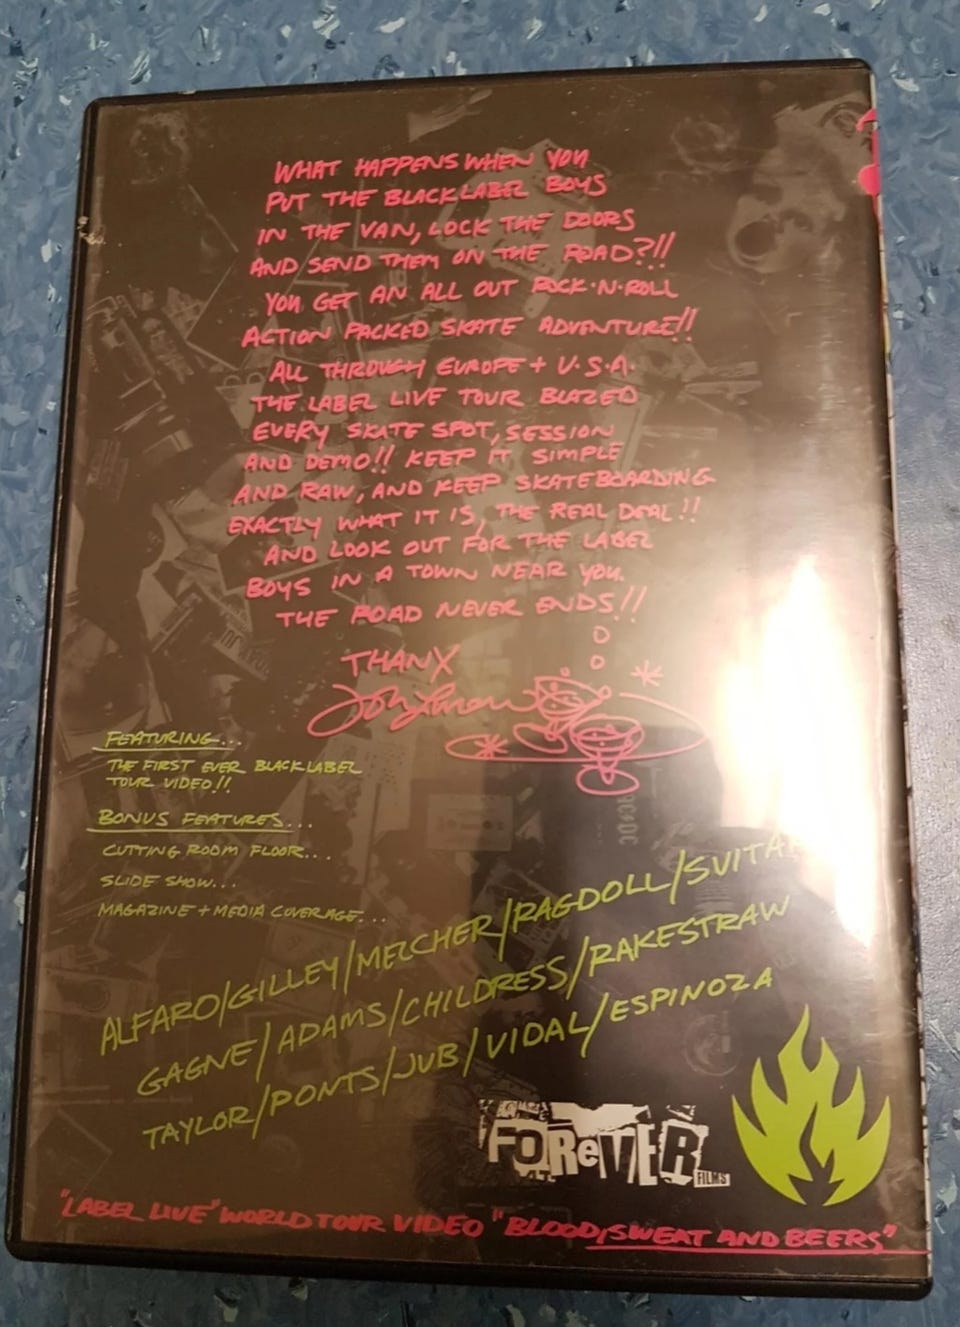 WHAT HAPPENS WHEN YOU
PUT THE BLACK LABEL BOYS
IN THE VAN, LOCK THE DOORS
AND SEND THEM ON THE ROAD?!!
YOU GET AN ALL OUT ROCK·N·ROLL
ACTION PACKED SKATE ADVENTURE!!
ALL THROUGH EUROPE + U.S.A.
THE LABEL LIVE TOUR BLAZED
EVERY SKATE SPOT, SESSION
AND DEMO!! KEEP IT SIMPLE
AND RAW, AND KEEP SKATEBOARDING
EXACTLY WHAT IT IS, THE REAL DEAL!!
AND LOOK OUT FOR THE LABEL
BOYS IN A TOWN NEAR YOU.
THE ROAD NEVER ENDS!!
THANX
FEATURING...
THE FIRST EVER BLACK LABEL
TOUR VIDEO!!
BONUS FEATURES...
CUTTING ROOM FLOOR...
SLIDE SHOW...
MAGAZINE + MEDIA COVERAGE...
AC DC
ALFARO/GILLEY/MELCHER/RAGDOLL/
GAGNE/ADAMS/CHILDRESS/RAKESTRAW
TAYLOR/PONTS/JUB/VIDAL/ESPINOZA
FOReVER
FILMS
"LABEL LIVE" WORLD TOUR VIDEO "BLOOD, SWEAT AND BEERS"